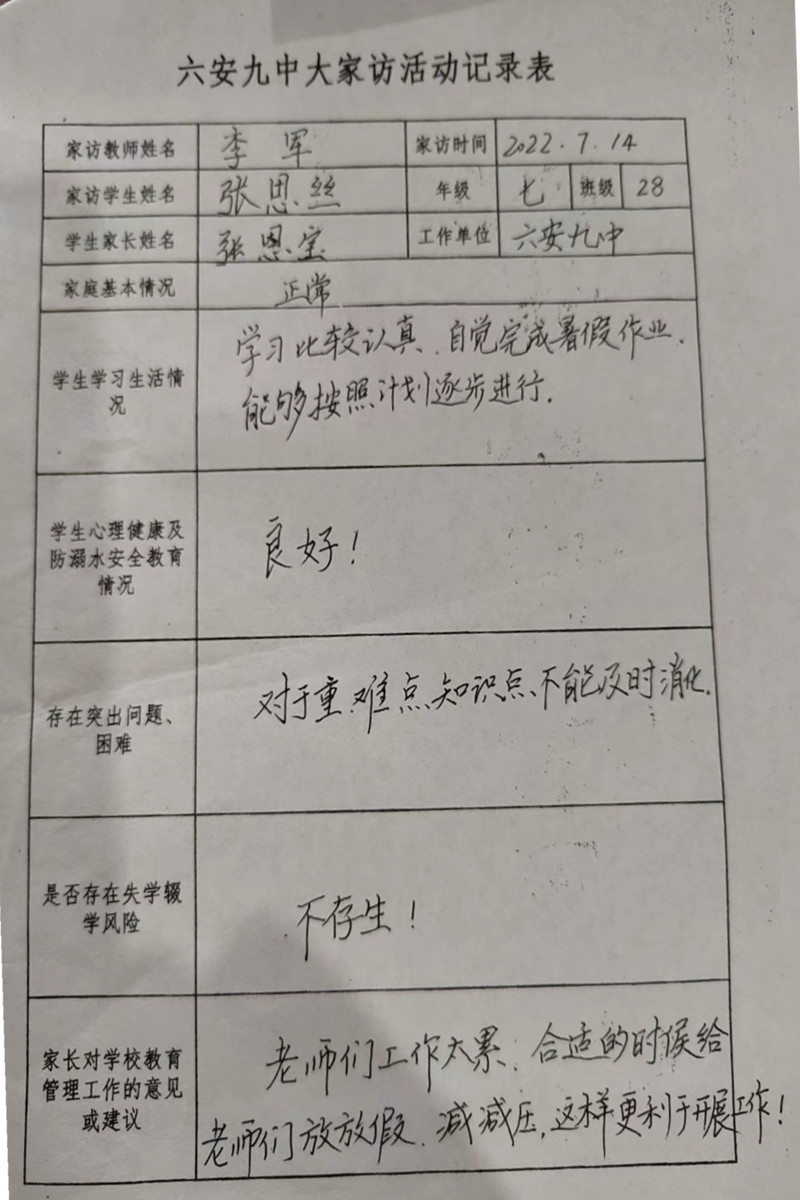 六安九中大家访活动记录表
家访教师姓名 李军 家访时间 2022.7.14
家访学生姓名 张思丝 年级 七 班级 28
学生家长姓名 张恩宝 工作单位 六安九中
家庭基本情况 正常
学生学习生活情
况
学习比较认真、自觉完成暑假作业.
能够按照计划逐步进行.
学生心理健康及
防溺水安全教育
情况
良好！
存在突出问题、
困难
对于重、难点、知识点、不能及时消化.
是否存在失学辍
学风险
不存生！
家长对学校教育
管理工作的意见
或建议
老师们工作太累、合适的时候给
老师们放放假、减减压,这样更利于开展工作！